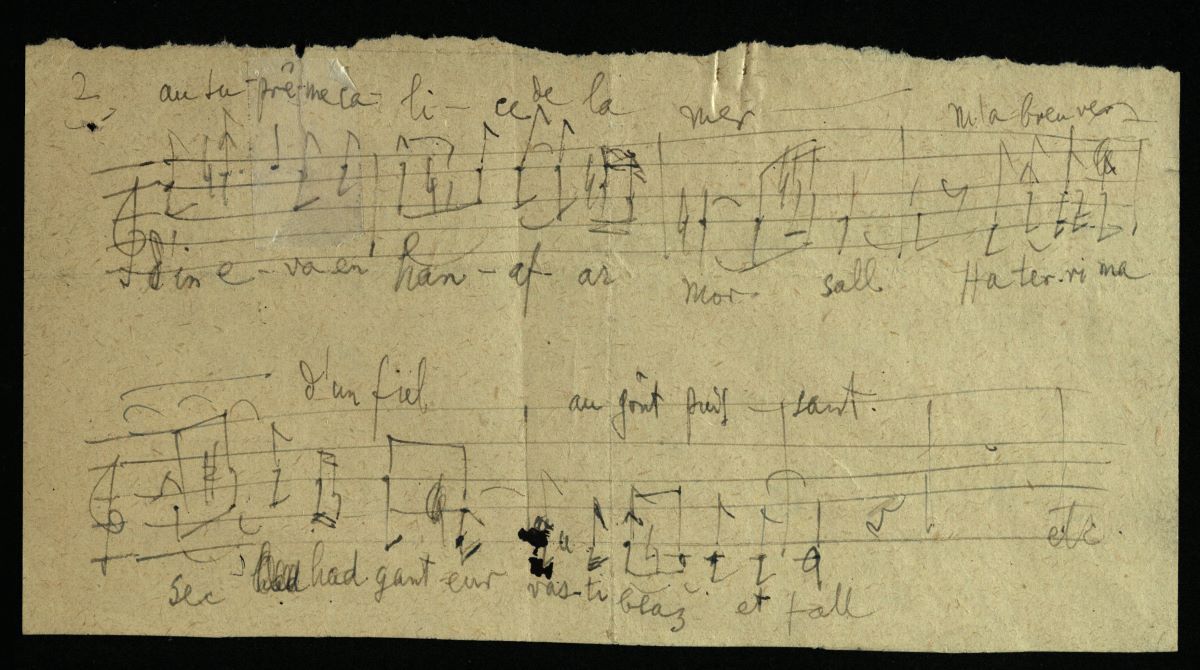 2 au su-prê-me ca-li-ce de la mer m'a breuver
D'in e-va en han-af ar Mor sall Ha ter.ri ma
d'un fiel au goût puis-sant.
etc.
sec'hed had gant eur vas-ti blaz et fall